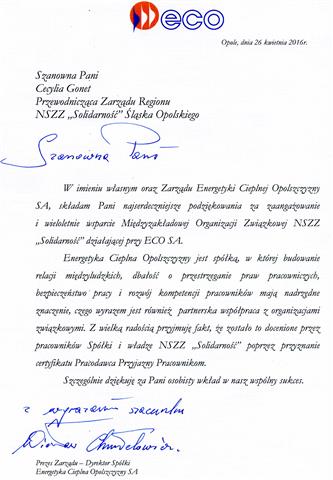 eco
Opole, dnia 26 kwietnia 2016r.
Szanowna Pani
Cecylia Gonet
Przewodnicząca Zarządu Regionu
NSZZ „Solidarność” Śląska Opolskiego
Szanowna Pani
W imieniu własnym oraz Zarządu Energetyki Cieplnej Opolszczyzny
SA, składam Pani najserdeczniejsze podziękowania za zaangażowanie
i wieloletnie wsparcie Międzyzakładowej Organizacji Związkowej NSZZ
„Solidarność” działającej przy ECO SA.
Energetyka Cieplna Opolszczyzny jest spółką, w której budowanie
relacji międzyludzkich, dbałość o przestrzeganie praw pracowniczych,
bezpieczeństwo pracy i rozwój kompetencji pracowników mają nadrzędne
znaczenie, czego wyrazem jest również partnerska współpraca z organizacjami
związkowymi. Z wielką radością przyjmuję fakt, że zostało to docenione przez
pracowników Spółki i władze NSZZ „Solidarność” poprzez przyznanie
certyfikatu Pracodawca Przyjazny Pracownikom.
Szczególnie dziękuję za Pani osobisty wkład w nasz wspólny sukces.
z wyrazami szacunku
Prezes Zarządu – Dyrektor Spółki
Energetyka Cieplna Opolszczyzny SA